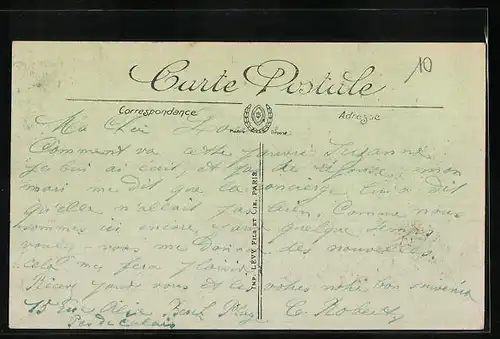 10
Carte Postale
Correspondance
Adresse
IMP. LÉVY FILS ET CIE. PARIS
Ma
Comment va cette pauvre Suzanne
je lui ai écrit, et pas de réponse, mon
mari me dit que la concierge lui a dit
qu'elle n'allait pas bien. Comme nous
sommes ici encore pour quelque temps
voulez vous me donner des nouvelles.
cela me fera plaisir
Recevez pour vous et les vôtres notre bon souvenir
15 Rue Berck Plage C. Roberty
Pas de Calais